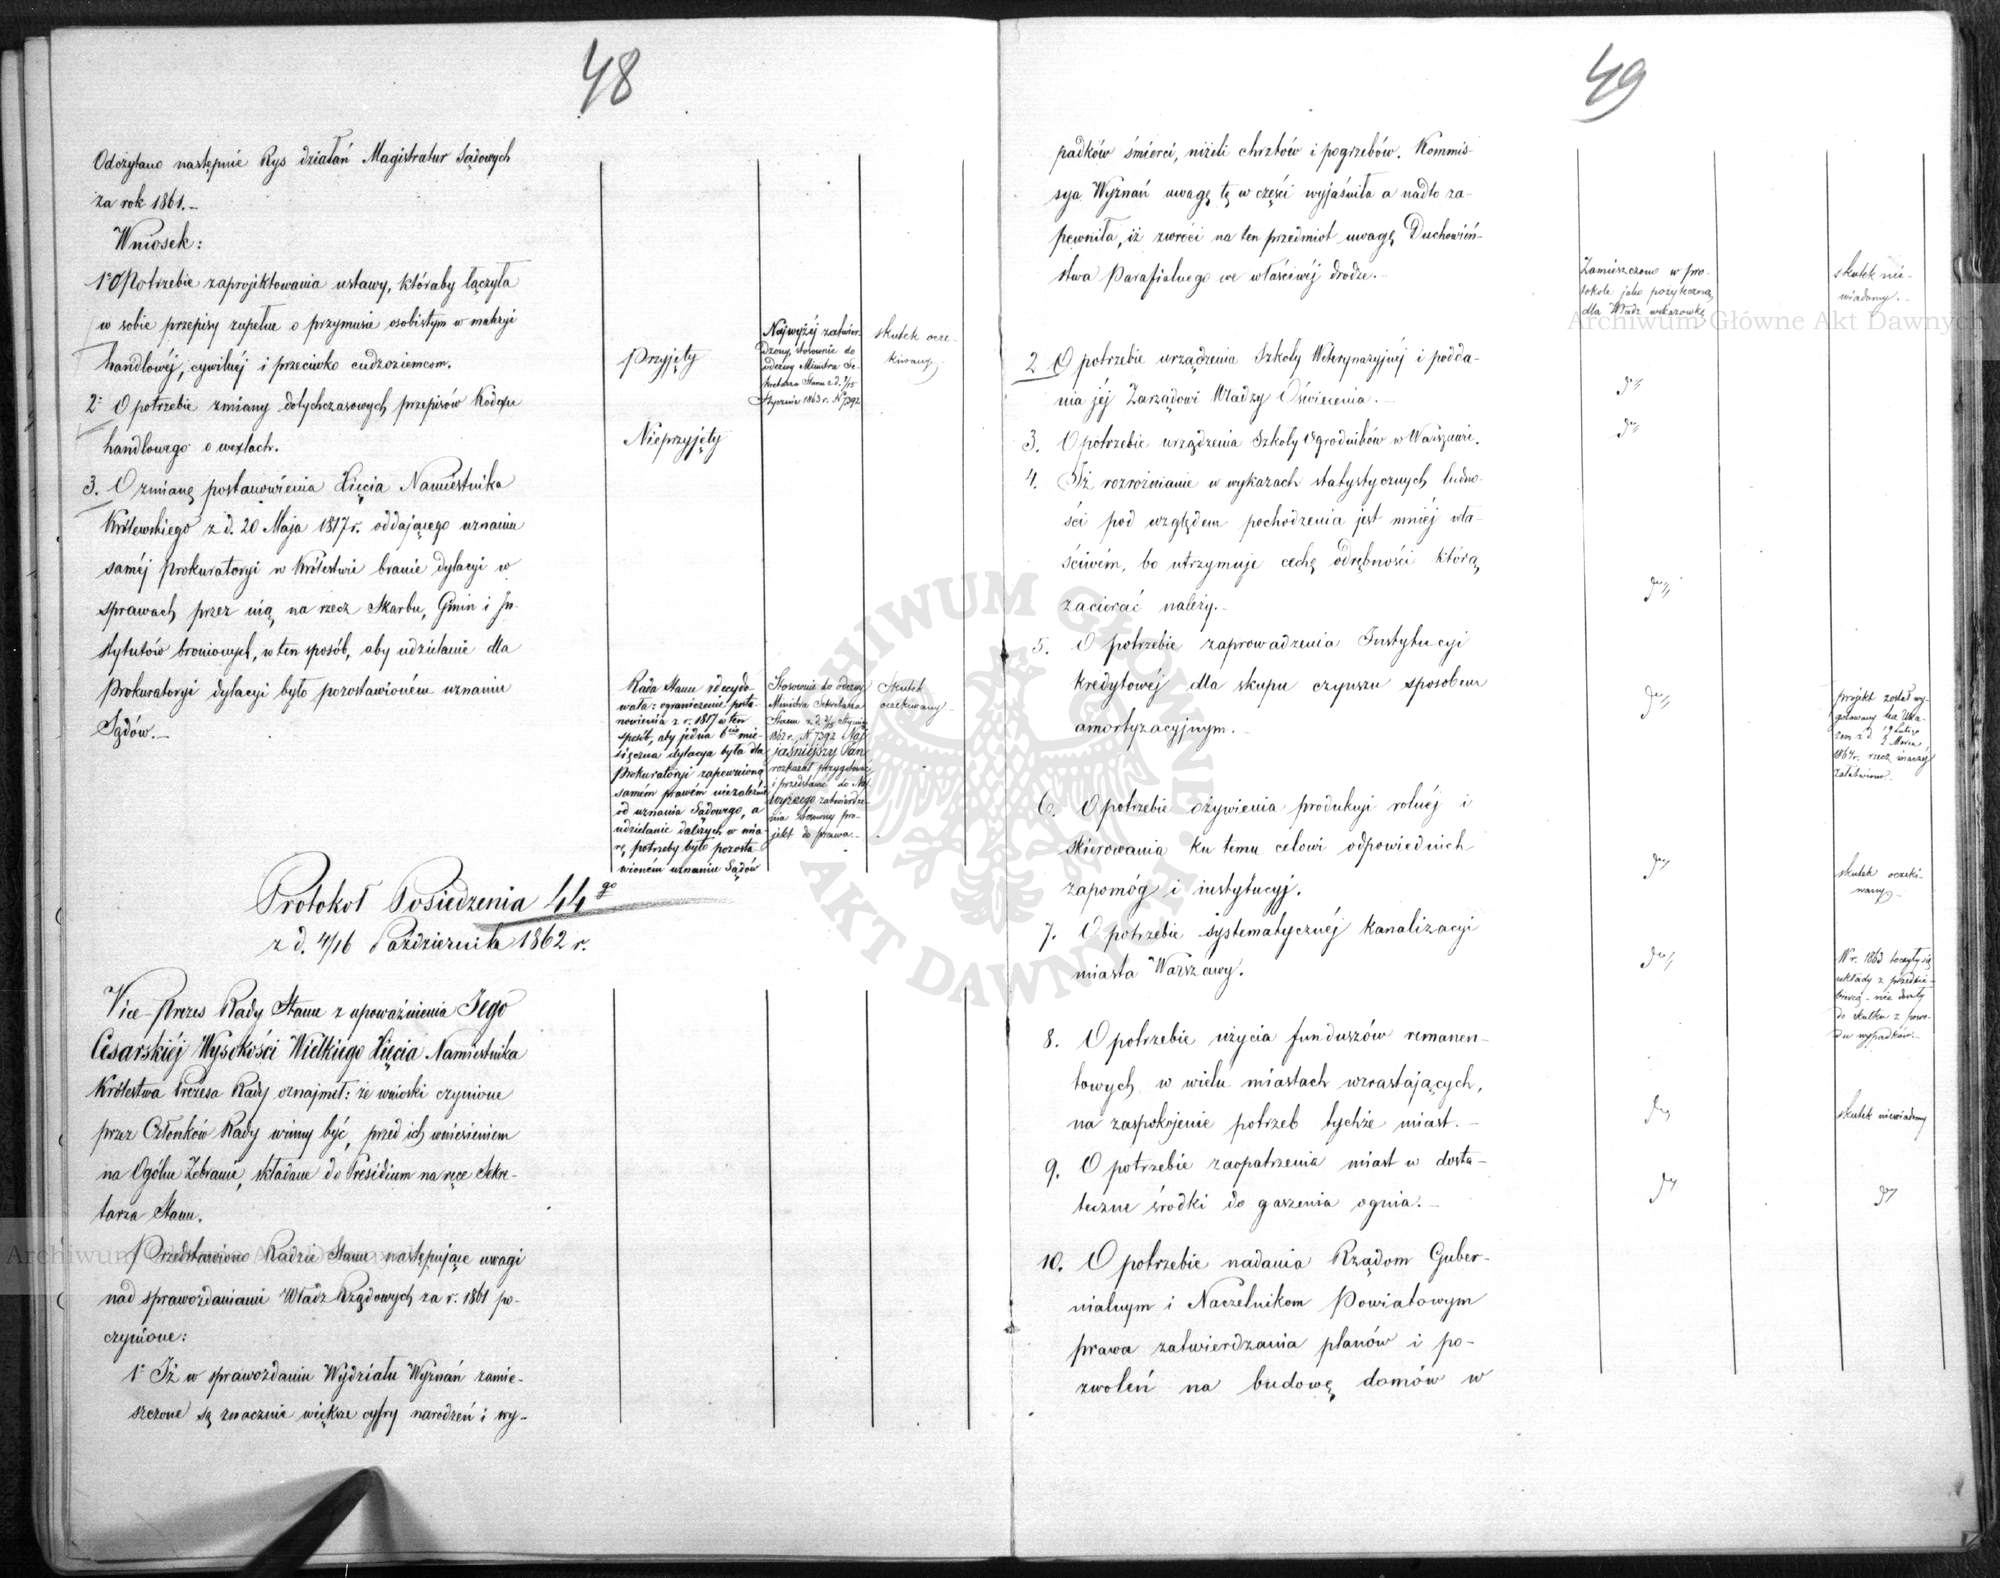 48
Odczytano następnie Rys działań Magistratur Sądowych
za rok 1861.–
Wniosek:
1º O Potrzebie zaprojektowania ustawy, któraby łączyła
w sobie przepisy zupełne o przymusie osobistym w materyi
handlowéj, cywilnéj i przeciwko cudzoziemcom.
Przyjęty
Najwyżéj zatwier-
dzony, stosownie do
odezwy Ministra Se-
kretarza Stanu z d. 3/15
Stycznia 1863 r. N 7392
skutek ocze-
kiwany
2º O potrzebie zmiany dotychczasowych przepisów Kodexu
handlowego o wexlach.
Nieprzyjęty
3. O zmianę postanowienia Xięcia Namiestnika
Królewskiego z d. 20 Maja 1817 r. oddającego uznaniu
saméj Prokuratoryi w Królestwie branie dylacyi w
sprawach przez nią na rzecz Skarbu, Gmin i In-
stytutów bronionych, w ten sposób, aby udzielanie dla
Prokuratoryi dylacyi było pozostawioném uznaniu
Sądów.–
Rada Stanu zdecydo-
wała: ograniczenie posta-
nowienia z r. 1817 w ten
sposób, aby jedna 6cio mie-
sięczna dylacya była dla
Prokuratoryi zapewnioną
samém prawem niezależnie
od uznania Sądowego, a
udzielanie dalszych w mia-
rę potrzeby było pozosta-
wioném uznaniu Sądów
Stosownie do odezwy
Ministra Sekretarza
Stanu z d. 3/15 Stycznia
1863 r. N 7392 Naj-
jaśniejszy Pan
rozkazał przygotować
i przedstawić do Naj-
wyższego zatwierdze-
nia stosowny pro-
jekt do prawa.–
Skutek
oczekiwany–
Protokół Posiedzenia 44go
z d. 4/16 Października 1862 r.
Vice-Prezes Rady Stanu z upoważnienia Jego
Cesarskiéj Wysokości Wielkiego Xięcia Namiestnika
Królestwa Prezesa Rady oznajmił: że wnioski czynione
przez Członków Rady winny być, przed ich wniesieniem
na Ogólne Zebranie, składane do Presidium na ręce Sekre-
tarza Stanu.
Przedstawiono Radzie Stanu następujące uwagi
nad sprawozdaniami Władz Rządowych za r. 1861 po-
czynione:
1º Iż w sprawozdaniu Wydziału Wyznań zamie-
szczone są znacznie większe cyfry narodzeń i wy-
49
padków śmierci, niżeli chrztów i pogrzebów. Kommis-
sya Wyznań uwagę tę w części wyjaśniła a nadto za-
pewniła, iż zwróci na ten przedmiot uwagę Duchowień-
stwa Parafialnego we właściwéj drodze.–
Zamieszczono w pro-
tokole jako pożyteczną
dla Władz wskazówkę
skutek nie-
wiadomy.–
2 O potrzebie urządzenia Szkoły Weterynaryjnéj i podda-
nia jéj Zarządowi Władzy Oświecenia.–
do
3. O potrzebie urządzenia Szkoły Ogrodników w Warszawie.
do
4. Iż rozróżnianie w wykazach statystycznych ludno-
ści pod względem pochodzenia jest mniéj wła-
ściwém, bo utrzymuje cechę odrębności którą
zacierać należy.–
do
5. O potrzebie zaprowadzenia Instytucyi
kredytowéj dla skupu czynszu sposobem
amortyzacyjnym.–
do
projekt został wy-
gotowany lecz Uka-
zem z d. 19 Lutego
2 Marca
1864 r. rzecz inaczéj
załatwiono.
6. O potrzebie ożywienia produkcyi rolnéj i
skierowania ku temu celowi odpowiednich
zapomóg i instytucyj.
do
skutek oczeki-
wany–
7. O potrzebie systematycznéj kanalizacyi
miasta Warszawy.
do
W r. 1863 toczyły się
układy z przedsię-
biercą – nie doszły
do skutku z powo-
du wypadków.–
8. O potrzebie użycia funduszów remanen-
towych w wielu miastach wzrastających,
na zaspokojenie potrzeb tychże miast.–
do
skutek niewiadomy
9. O potrzebie zaopatrzenia miast w dosta-
teczne środki do gaszenia ognia.–
do
do
10. O potrzebie nadania Rządom Guber-
nialnym i Naczelnikom Powiatowym
prawa zatwierdzania planów i po-
zwoleń na budowę domów w
ARCHIWUM GŁÓWNE AKT DAWNYCH
Archiwum Główne Akt Dawnych
Archiwum Główne Akt Dawnych